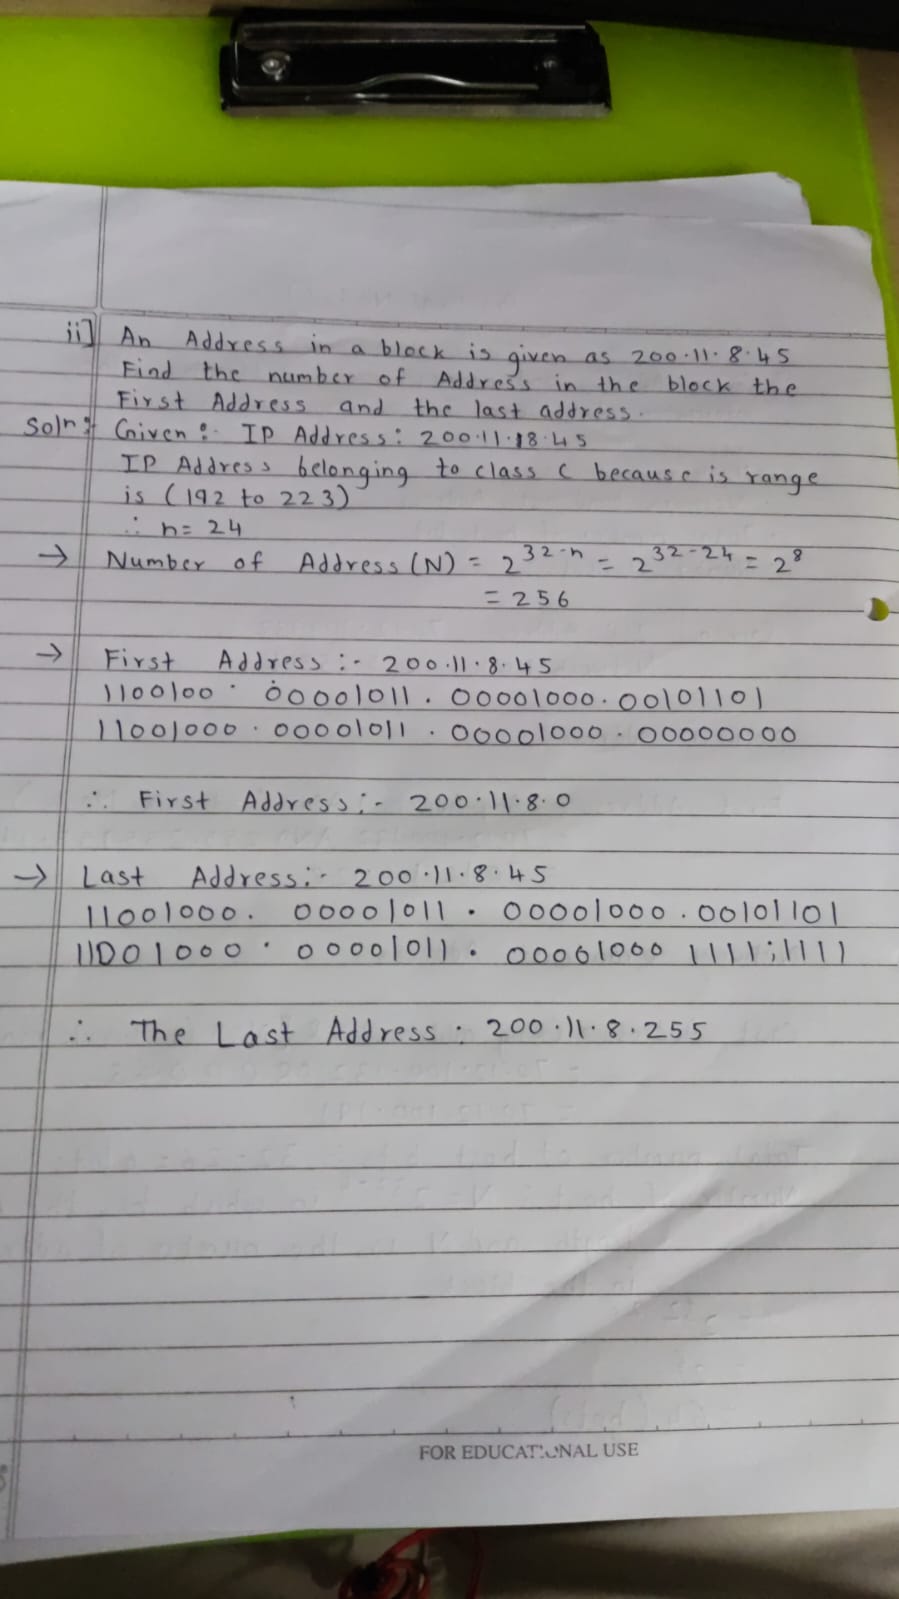 ii] An Address in a block is given as 200.11.8.45
Find the number of Address in the block the
First Address and the last address.
Soln: Given :- IP Address: 200.11.18.45
IP Address belonging to class C because is range
is (192 to 223)
∴ n= 24
→ Number of Address (N) = 2^32-n = 2^32-24 = 2^8
= 256
→ First Address :- 200.11.8.45
1100100 . 00001011 . 00001000 . 00101101
11001000 . 00001011 . 00001000 . 00000000
∴ First Address :- 200.11.8.0
→ Last Address :- 200.11.8.45
11001000. 00001011 . 00001000 . 00101101
11001000 . 00001011 . 00001000 1111;1111
∴ The Last Address : 200.11.8.255
FOR EDUCATIONAL USE